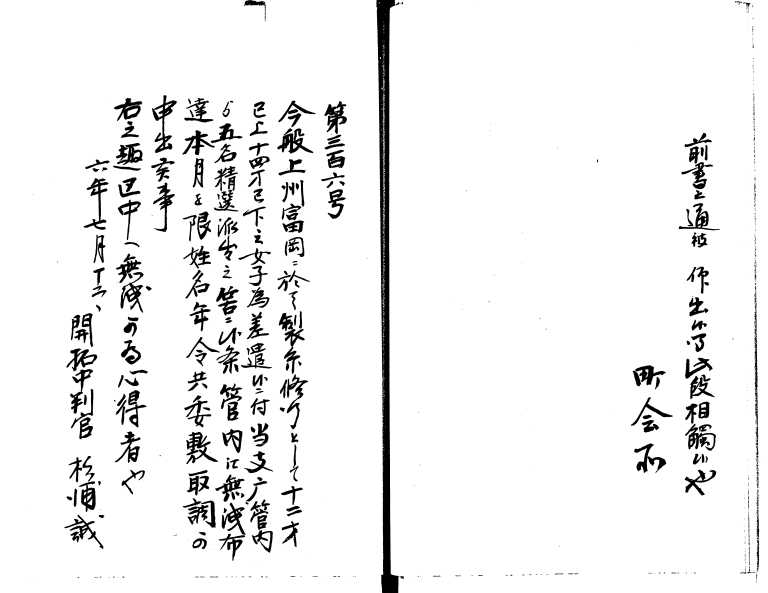 前書之通被 仰出候条此段相觸候也
町会所
第三百六号
今般上州富岡ニ於テ製糸修行トして十二才
已上十四才已下之女子為差遣候ニ付当支庁管内
ゟ五名精選派出之筈ニ候条管内江無洩布
達本月を限姓名年令共委敷取調可
申出候事
右之趣区中へ無洩可為心得者也
六年七月十二日
開拓中判官 杉浦誠